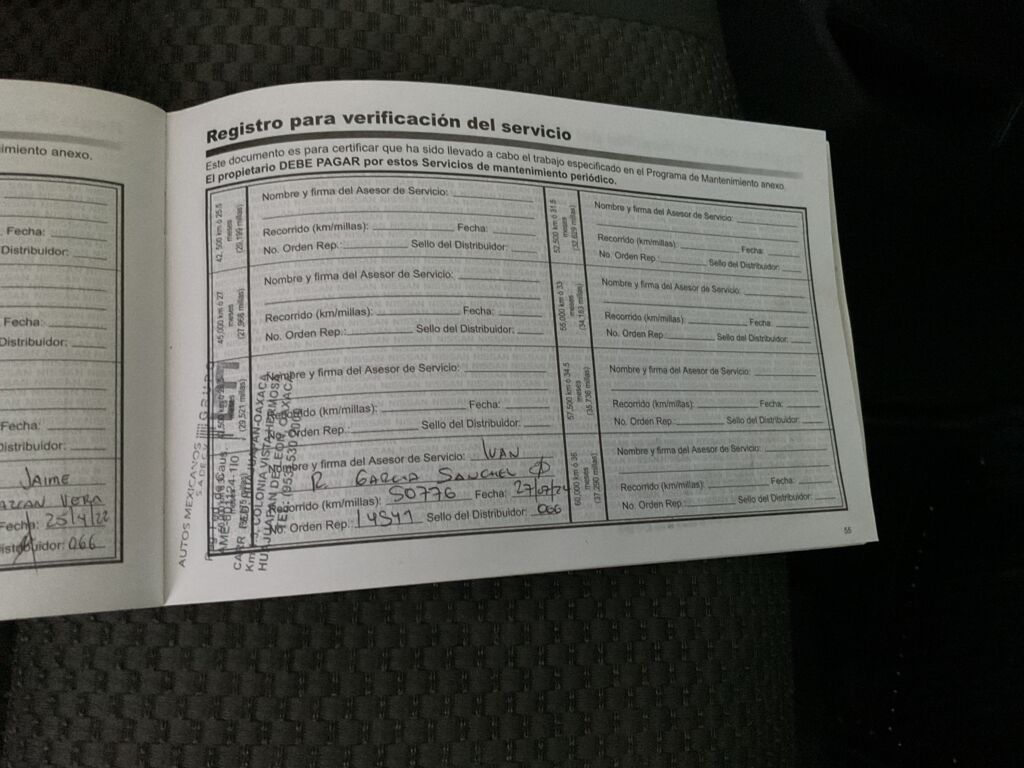 imiento anexo.
Fecha:
Distribuidor:
Fecha:
Distribuidor:
Fecha:
Distribuidor:
JAIME
VERA
Fecha: 25/4/22
Distribuidor: 066
Registro para verificación del servicio
Este documento es para certificar que ha sido llevado a cabo el trabajo especificado en el Programa de Mantenimiento anexo.
El propietario DEBE PAGAR por estos Servicios de mantenimiento periódico.
42, 500 km ó 25.5
meses
Nombre y firma del Asesor de Servicio:
Recorrido (km/millas): Fecha:
No. Orden Rep.: Sello del Distribuidor:
45,000 km ó 27
meses
(27,968 millas)
Nombre y firma del Asesor de Servicio:
Recorrido (km/millas): Fecha:
No. Orden Rep.: Sello del Distribuidor:
(29,521 millas)
Nombre y firma del Asesor de Servicio:
Recorrido (km/millas): Fecha:
No. Orden Rep.: Sello del Distribuidor:
Nombre y firma del Asesor de Servicio: IVAN
R. GARCIA
Recorrido (km/millas): 50776 Fecha:
No. Orden Rep.: 14541 Sello del Distribuidor: 066
52,500 km ó 31.5
meses
(32,629 millas)
Nombre y firma del Asesor de Servicio:
Recorrido (km/millas): Fecha:
No. Orden Rep.: Sello del Distribuidor:
55,000 km ó 33
meses
(34,183 millas)
Nombre y firma del Asesor de Servicio:
Recorrido (km/millas): Fecha:
No. Orden Rep.: Sello del Distribuidor:
57,500 km ó 34.5
meses
(35,736 millas)
Nombre y firma del Asesor de Servicio:
Recorrido (km/millas): Fecha:
No. Orden Rep.: Sello del Distribuidor:
60,000 km ó 36
meses
(37,290 millas)
Nombre y firma del Asesor de Servicio:
Recorrido (km/millas): Fecha:
No. Orden Rep.: Sello del Distribuidor:
AUTOS MEXICANOS
GRUPO
S A DE C V
COLONIA VISTA HERMOSA
HUAJUAPAN DE LEON, OAXACA
55